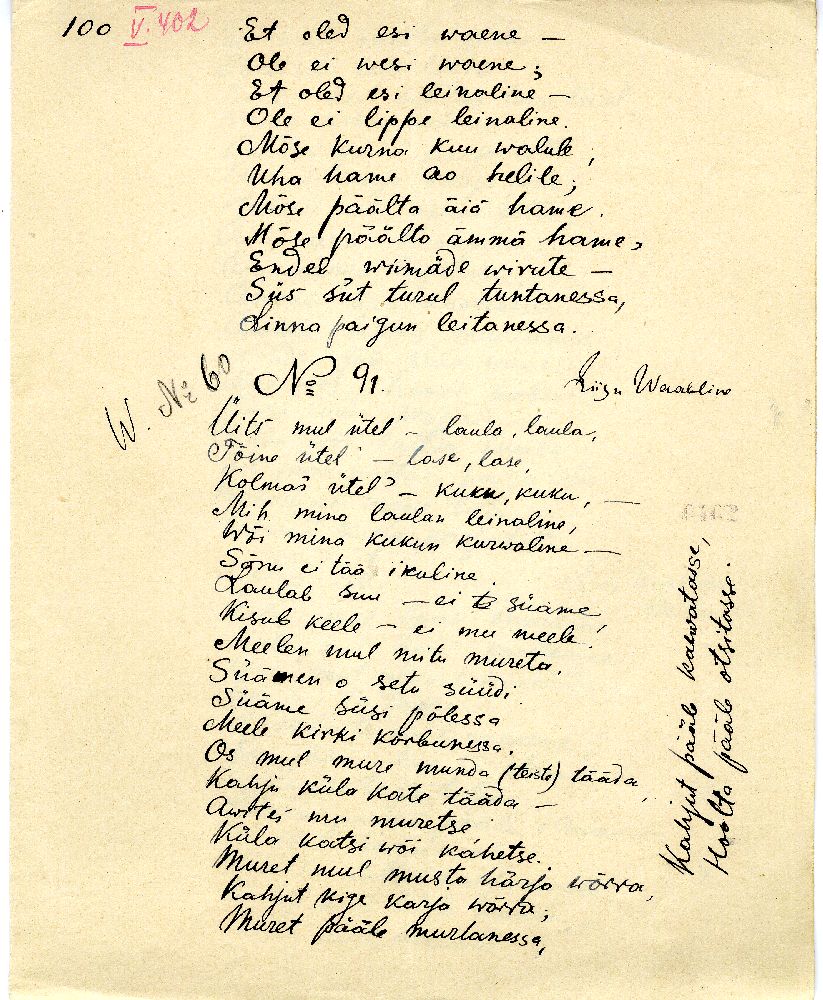 100 V. 402
Et oled esi waene —
Ole ei wesi waene;
Et oled esi leinaline —
Ole ei lippe leinaline.
Mõse kurna kuu walule,
Uha hame ao helile;
Mõse päälta äiä hame.
Mõse päälta ämmä hame,
Endel wiimäde wirute —
Siis süt turul tuntanessa,
Linna paigun leitanessa.
W. № 60
№ 91.
Üits mul ütel' — laula, laula,
Tõine ütel' — lase, lase,
Kolmas ütel' — kuku, kuku, —
Mih mina laulan leinaline,
Wõi mina kukun kurwaline —
Sõnu ei tää ikuline.
Laulab suu — ei süäme!
Kisub keele — ei mu meele!
Meelen mul mitu mureta,
Süämen o setu süüdi.
Süäme süsi põlessa
Meele kirki kõrbunessa.
Os mul mure munda (teiste) tääda,
Kahju küla kate tääda —
Awites mu muretse
Küla katsi wõi kahetse.
Muret mul musta härja wõrra,
Kahjut kige karja wõrra;
Muret pääle murtanessa,
Kahjut pääle kaewatasse,
Hoolta pääle otsitasse.